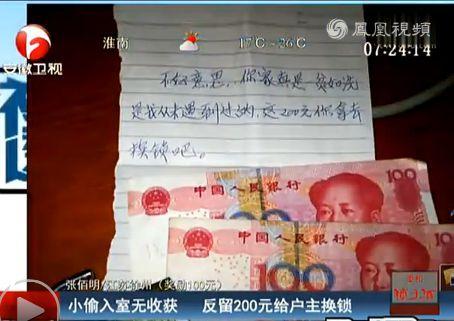 鳳凰視頻
安徽卫视
淮南 17℃-26℃ 07:24:14
不好意思..你家真是 贫如洗
是我从未遇到过的,这200元你拿去
换锁吧。
中国人民银行 100
中国人民银行 100
张佰明/江苏徐州(奖励100元)
小偷入室无收获 反留200元给户主换锁